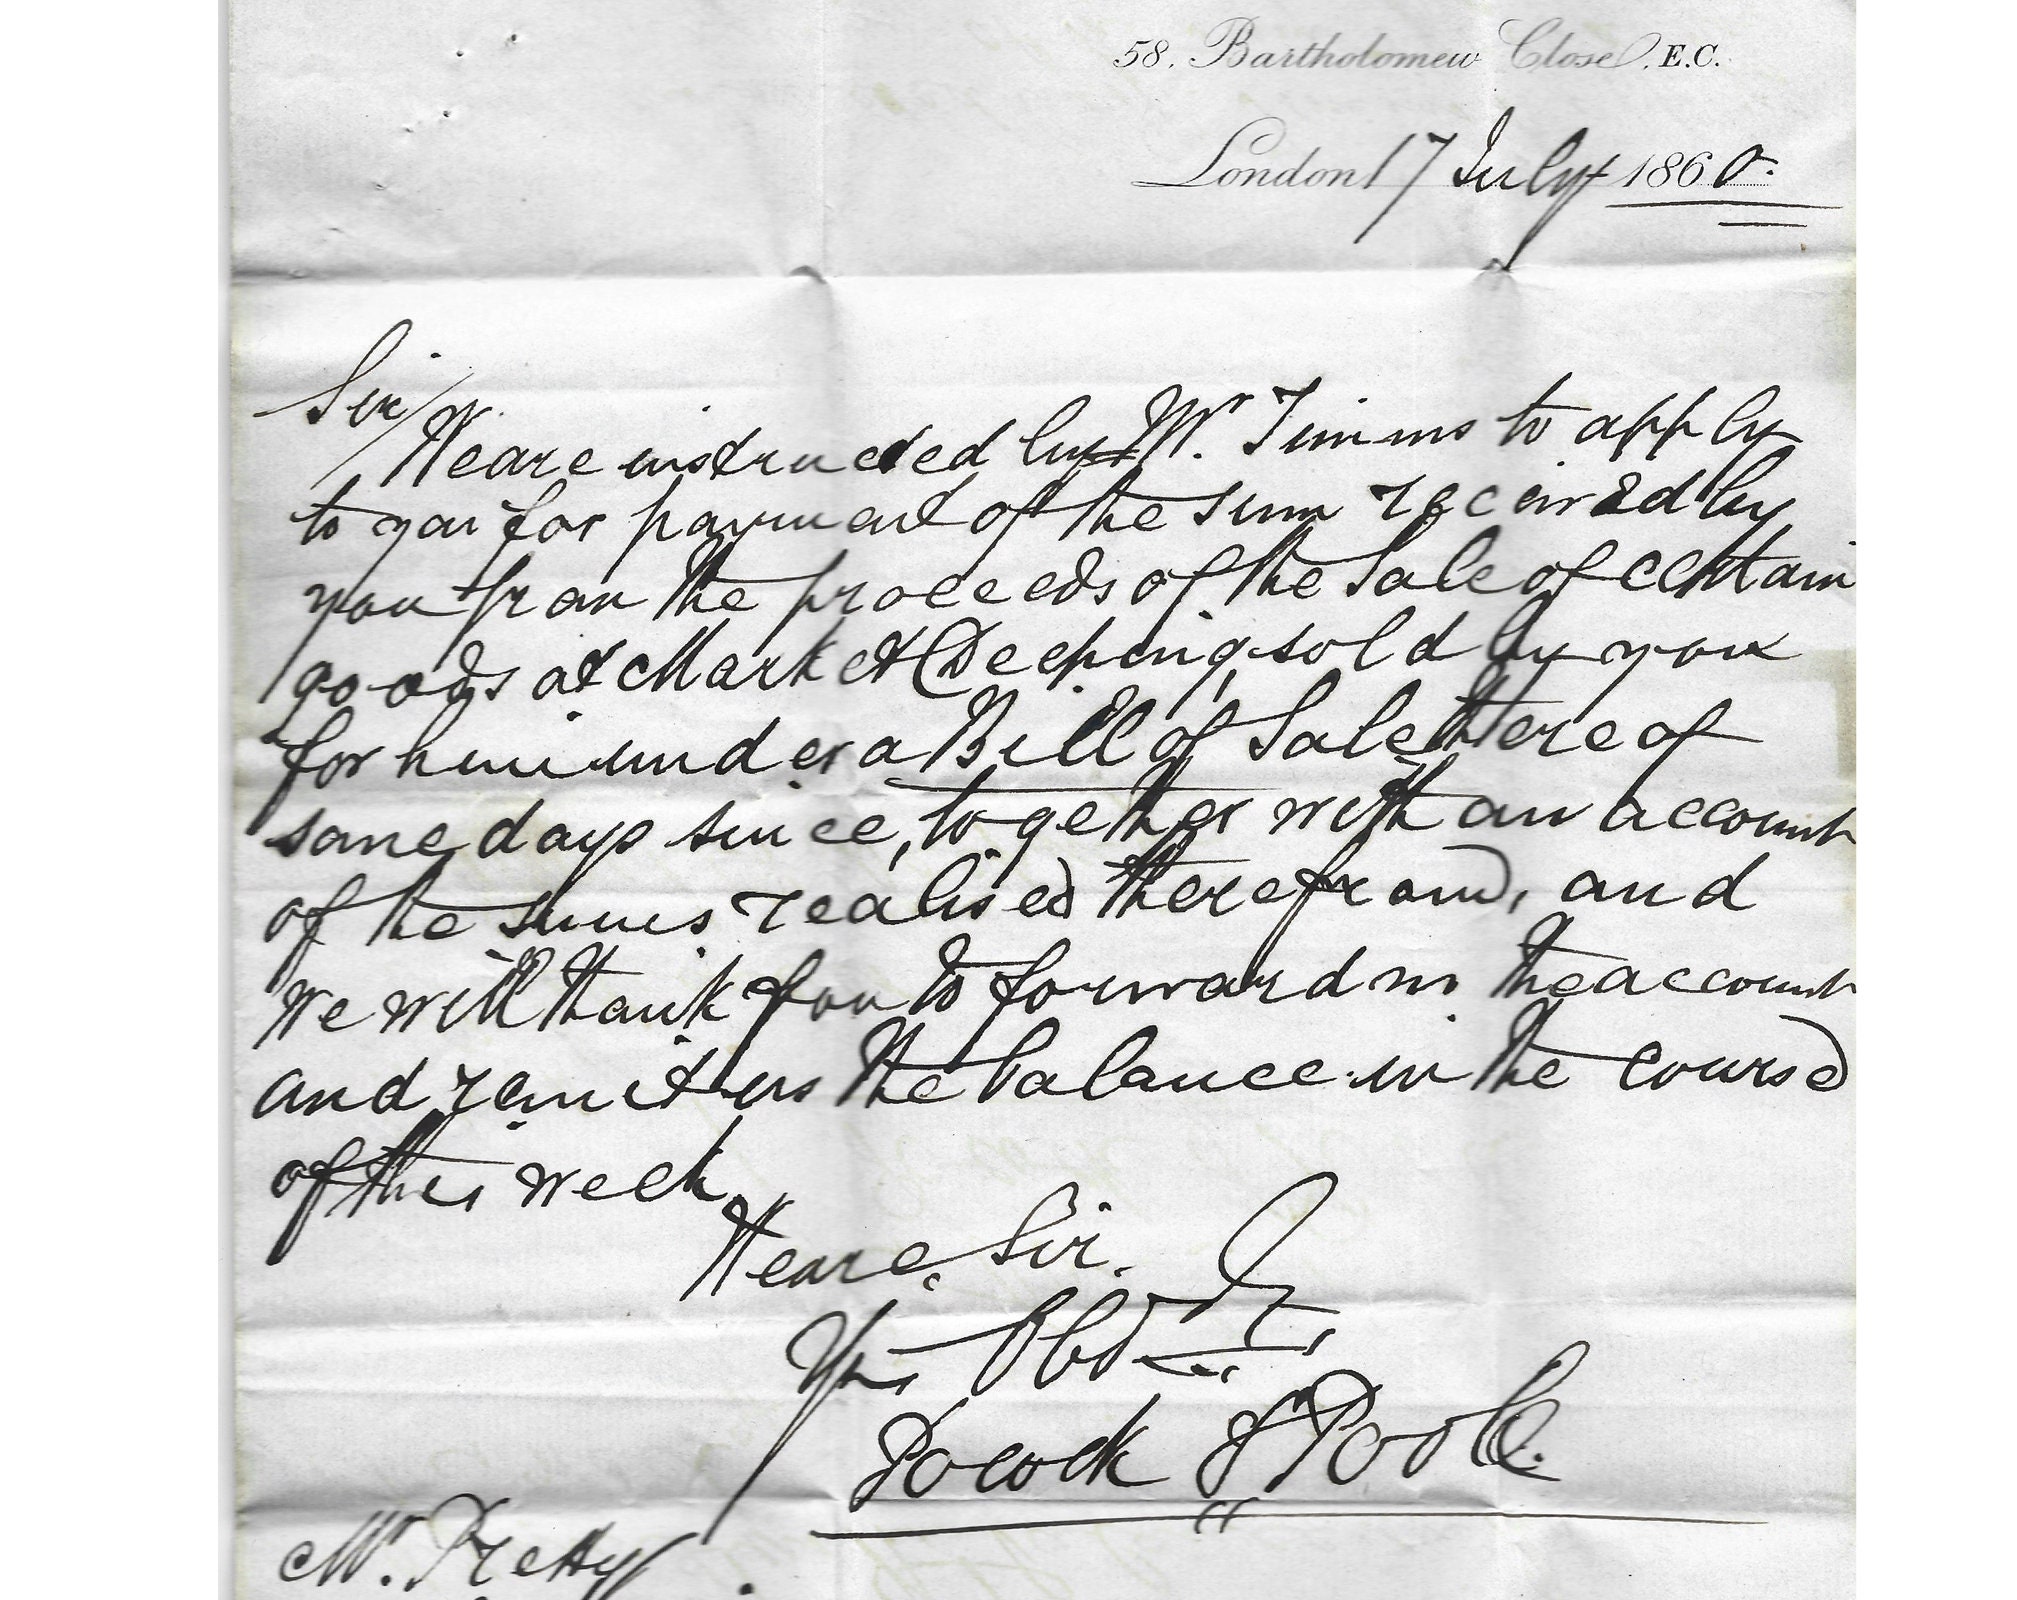 58. Bartholomew Close. E.C.
London 17 July 1860.
Sir/
We are instructed by Mr. Timms to apply
to you for payment of the sum received by
you from the proceeds of the Sale of certain
goods at Market Deeping, sold by you
for him under a Bill of Sale thereof
some days since, together with an account
of the sums realised therefrom, and
we will thank you to forward us the account
and remit us the balance in the course
of this week.
We are, Sir.
Yrs
Pocock & Poole.
Mr. Pretty